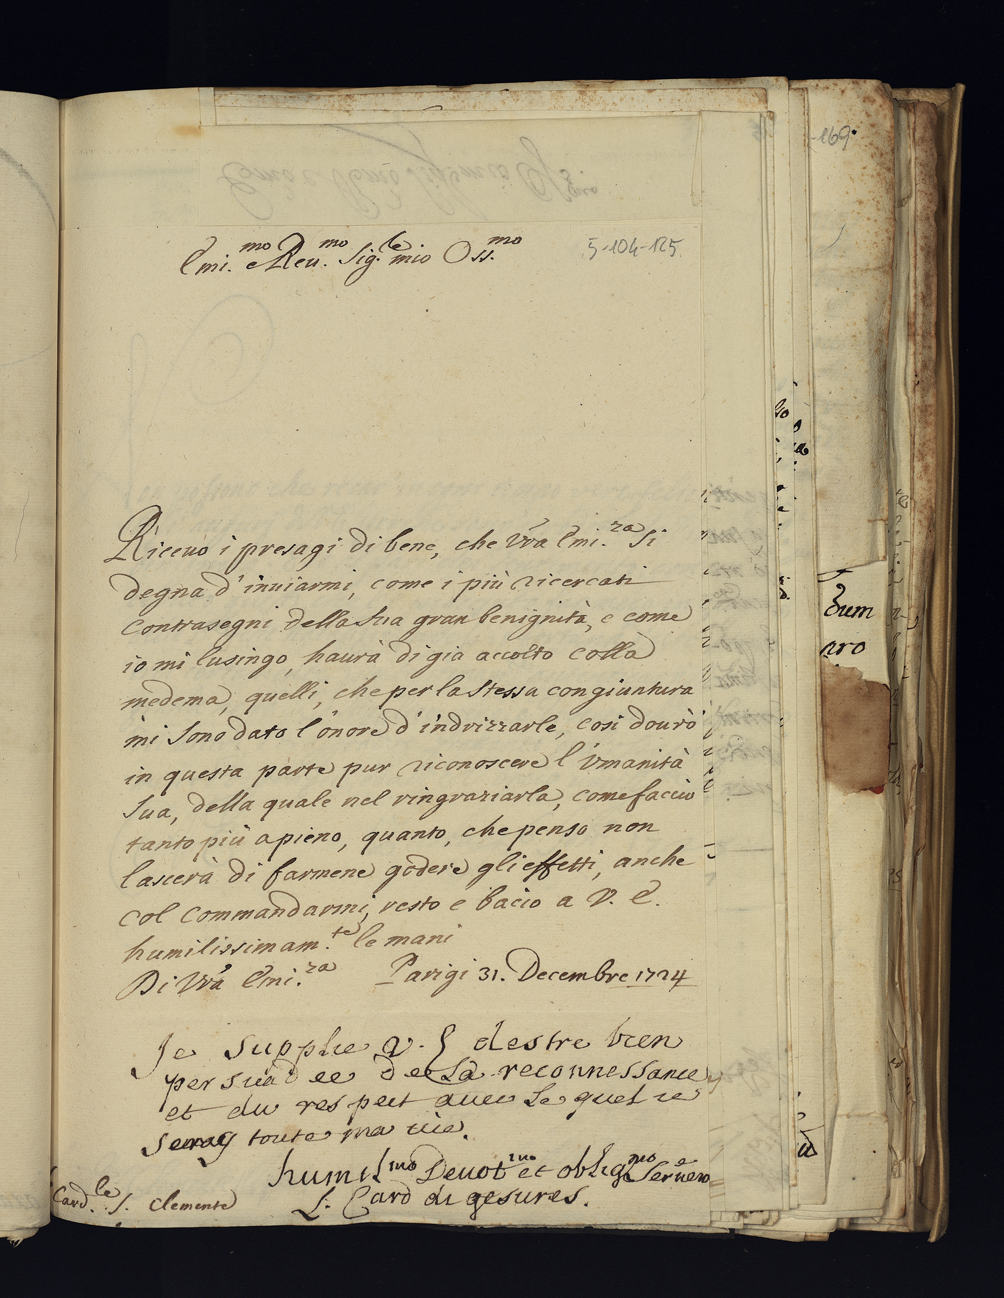 Emi.mo e Reu.mo Sig.le mio Oss.mo
5-104-125
169
Riceuo i presagi di bene, che Vra Emi.za Si
degna d'inuiarmi, come i più ricercati
contrasegni della Sua gran benignità, e come
io mi lusingo, haurà di gia accolto colla
medema, quelli, che per la stessa congiuntura
mi sono dato l'onore d'indrizzarle, così dourò
in questa parte pur riconoscere l'Vmanità
Sua, della quale nel ringraziarla, come faccio
tanto più apieno, quanto, che penso non
lascerà di farmene godere gli effetti, anche
col commandarmi, resto e bacio a V. E.
humilissimam.te le mani
Di Vra Emi.za Parigi 31. Decembre 1724
Je supplie V. E destre bien
persuadee de La reconnessance
et du respect auec Le quel ie
seray toute ma uie.
humil.mo Deuot.mo et oblig.mo Seruero
L. Card di gesures.
Card.le S. Clemente